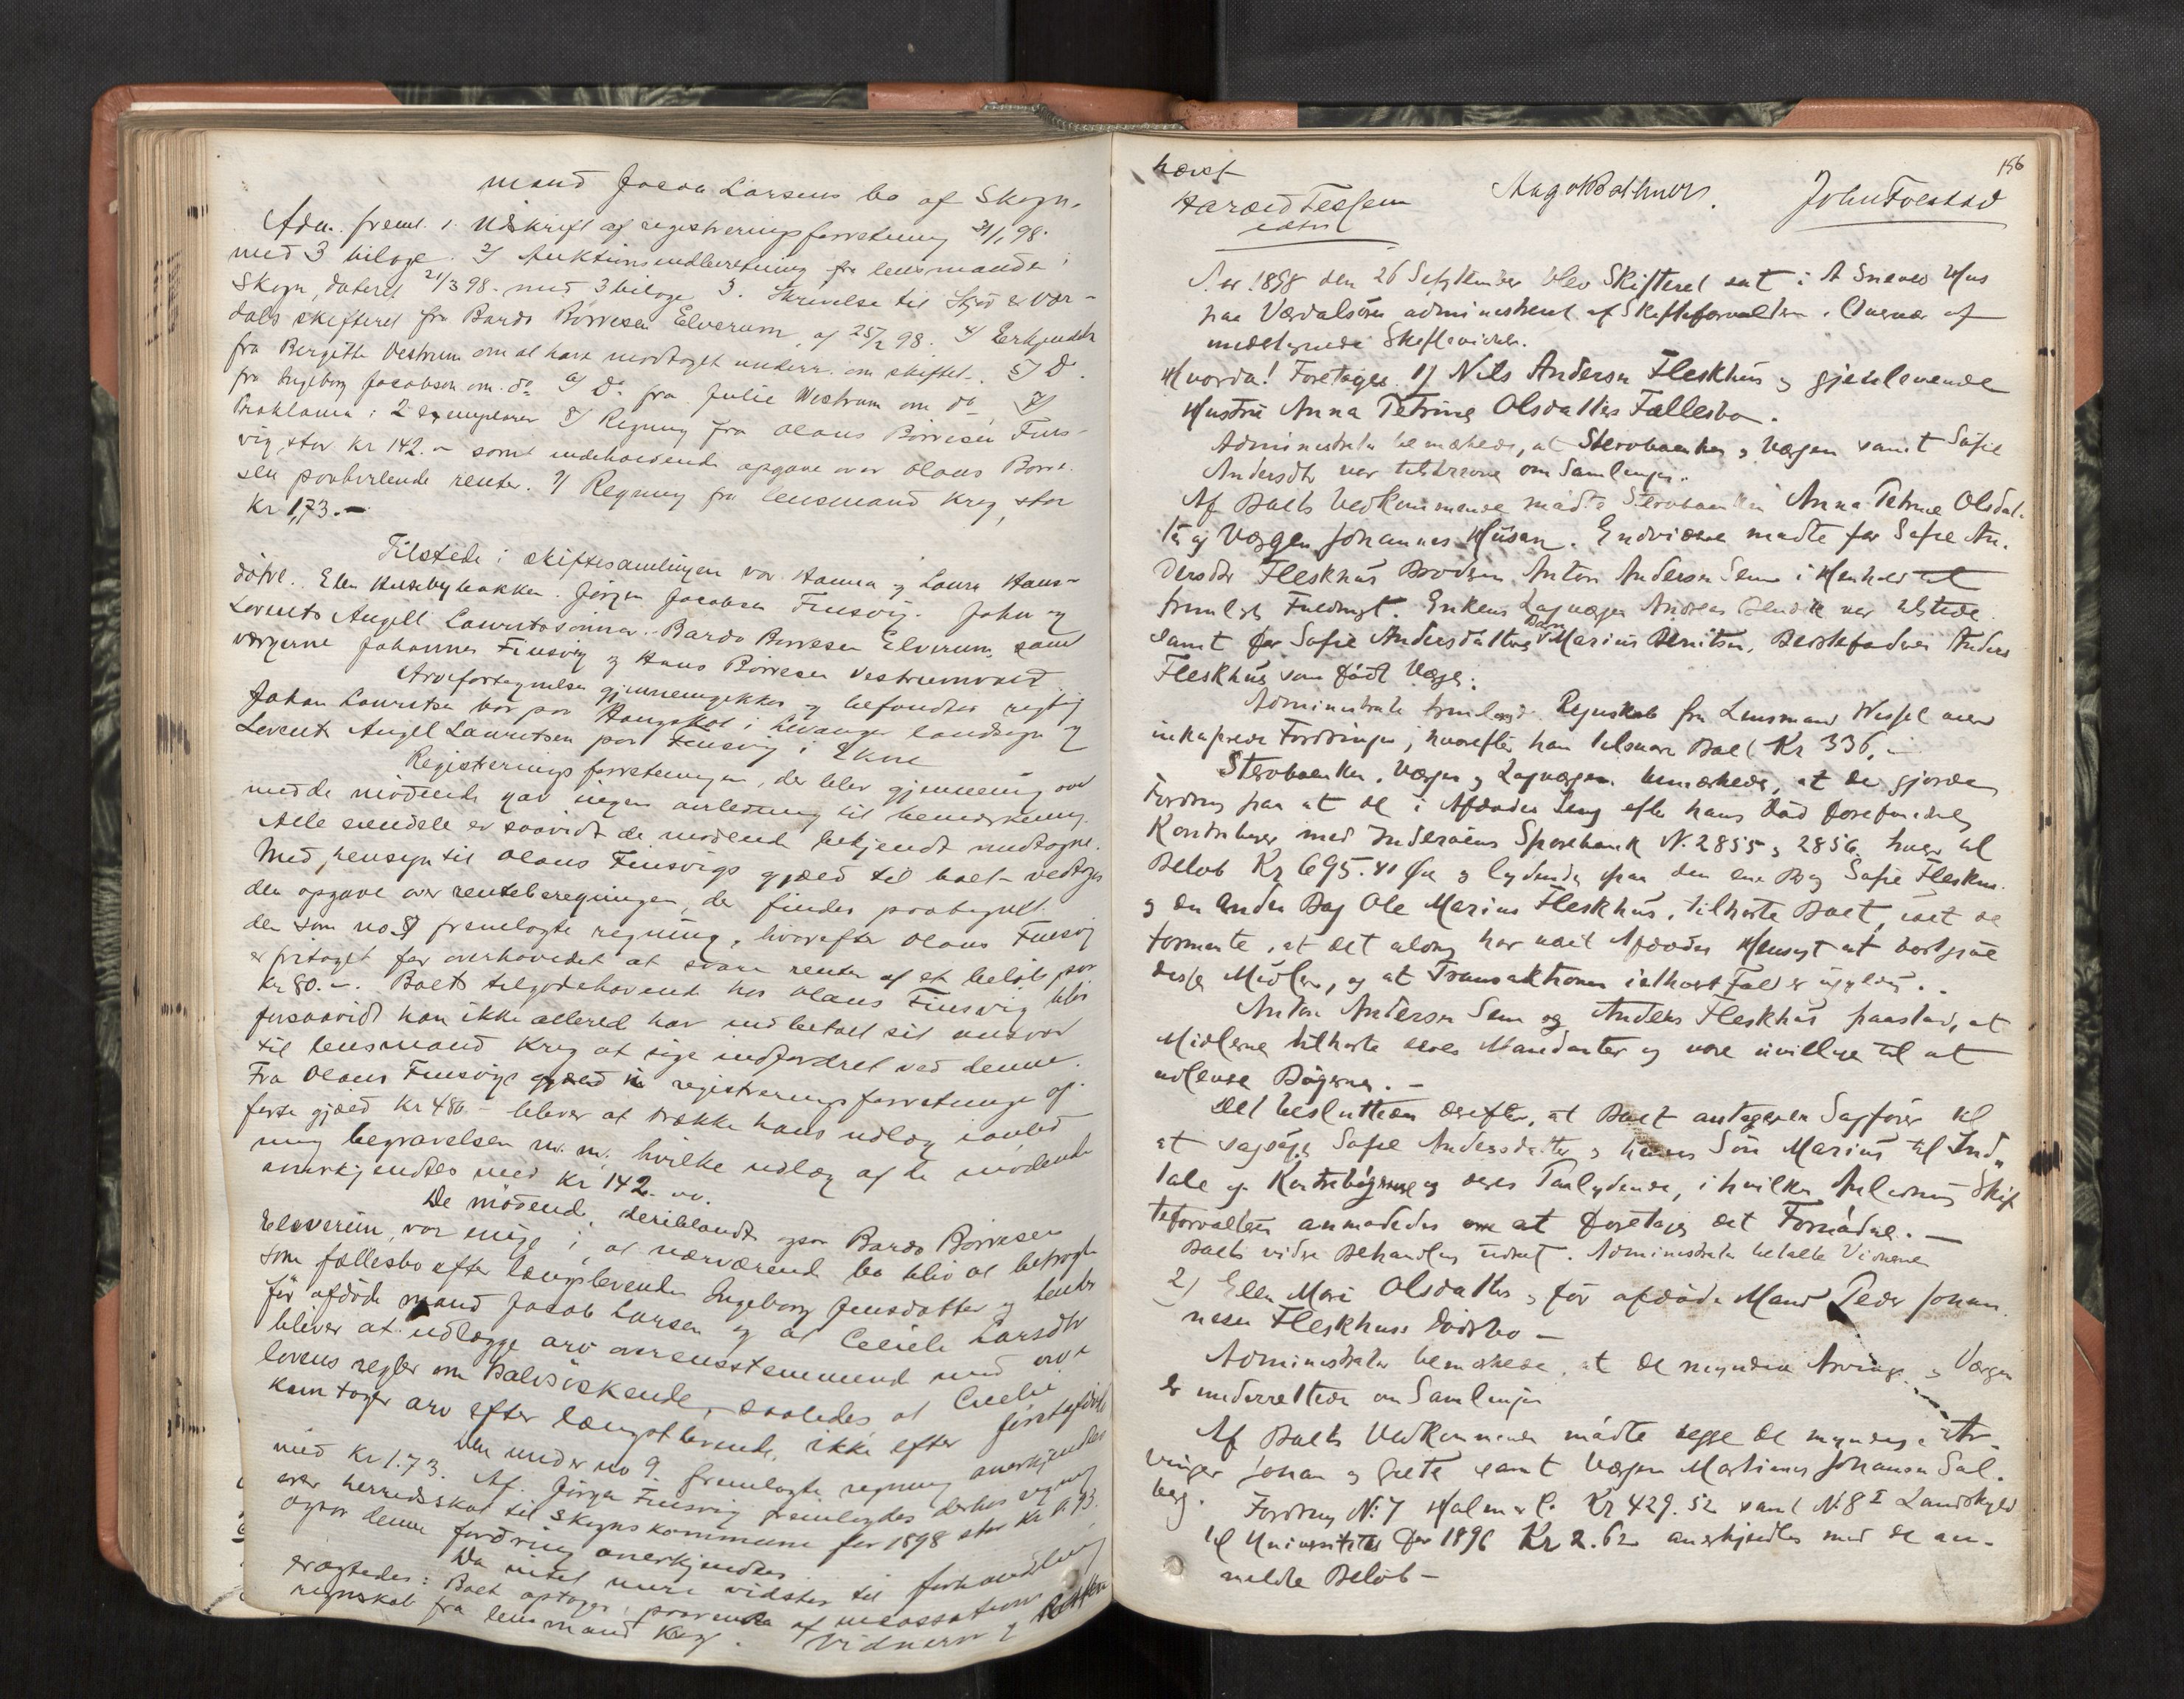 mand Jacob Larsens bo af Skogn.
Adm. freml. 1. Udskrift af registreringsforretning 31/1 98.
med 3 bilage. 2/ Auktionsindberetning fra lensmanden i
Skogn, dateret 21/3 98. med 3 bilage 3. Skrivelse til Stjør & Vær-
dals skifteret fra Bardo Börresen Elverum, af 25/2 98. 4/ Erkjendelse
fra Bergitte Vestrum om at have modtaget underr. om skiftet. 5/ Do.
fra Ingeborg Jacobsen om do. 6/ Do. fra Julie Westrum om do 7/
Proklama i 2 exemplarer 8/ Regning fra Olaus Börresen Fins-
vig, stor kr 142. samt indeholdende opgave over Olaus Börre-
sen paahvilende renter. 9/ Regning fra lensmand Kreg, stor
kr 1,73.-
Tilstede i skiftesamlingen var Hanna og Laura Hans-
døtre. Elen Husebybakken. Jørgen Jacobsen Finsvig. John og
Lorents Angell Lauritssönner. Bardo Börresen Elverum, samt
værgerne Johannes Finsvig og Hans Börresen Vestrumvald.
Arvefortegnelsen gjennemgikkes og befandtes rigtig
Johan Lauritsen bor paa Haugskot i Levanger landsogn og
Lorents Angel Lauritsen paa Finsvig i Ekne
Registreringsforretningen, der blev gjennemgaaet
med de mödende gav ingen anledning til bemerkning.
Alle eiendele er saavidt de mödende bekjendt medtagne.
Med hensyn til Olaus Finsvigs gjæld til boet vedtoges
den opgave over renteberegningen, der findes paategnet
den som no 8 fremlagte regning, hvorefter Olaus Finsvig
er fritaget for overhovedet at svare renter af et belöb paa
kr 80.-. Boets tilgodehavende hos Olaus Finsvig blir
forsaavidt han ikke allerede har indbetalt sit ansvar
til lensmand Kreg at sige indfordret ved denne.
Fra Olaus Finsvigs gjæld i registreringsforretningen op-
førte gjæld kr 486 - bliver at trække hans udlæg i anled-
ning begravelsen m.m. hvilke udlæg af de mödende
anerkjendtes med kr 142.
De mödende, deriblandt ogsaa Bardo Börresen
Elverum, var enige i, at nærværende bo blir at betragte
som fællesbo efter længstlevende Ingeborg Jensdatter og hendes
før afdöde mand Jacob Larsen og at Cecilie Larsdtr
bliver at udlægge arv overensstemmende med arve-
lovens regler om Halvsöskende, saaledes at Cecilie
kun tager arv efter længstlevende, ikke efter förstafdöde
Den under no 9 fremlagte regning anerkjendtes
med kr 1.73. Af Jörgen Finsvig fremlagdes derhos regning
over herredsskat til Skogns kommune for 1898 stor kr
ogsaa denne fordring anerkjendtes.
Da intet mere vidstes til forhandling
eragtedes: Boet optages, paavente af incassations-
regnskab fra lensmand Kreg. Vidnerne 2 Retten
156
hævet
Harald Tessem
Aug Bothner.
John Tolstad
Aar 1898 den 26 September blev Skifteret sat i A Sneves Hus
paa Værdalsøren administreret af Skifteforvalteren. Overvær af
undertegnede Skiftevidner.
Hvorda! Foretoges. 1/ Nils Andersen Fleskhus og gjenlevende
Hustru Anna Petrine Olsdatters Fællesbo.
Administrator bemærkede, at Stervboenken og Værgen samt Sofie
Andersdtr var tilskrevne om Samlingen.
Af Boets Vedkommende mødte Stervboenken Anna Petrine Olsdat-
ter og Værgen Johannes Husan. Endvidere mødte for Sofie An-
dersdtr Fleskhus Broderen Anton Andersen Sem i Henhold til
fremlagt Fuldmagt. Enkens Lagværge Andreas var tilstede
samt for Sofie Andersdatters Barn Marius Bernitsen, Bedstefaderen Anders
Fleskhus som født Værge.
Administrator fremlagde Regnskab fra Lensmand Wessel over
inkasserede Fordringer, hvorefter han tilsvarer Boet Kr 336,-
Stervboenken, Værgen og Lagværgen bemærkede, at de gjorde
Fordring paa at de i Afdødes Seng efter hans Død forefundne
Kontrabøger med Inderøens Sparebank N. 2855 og 2856 hver til
Beløb Kr 695.40 Øre og lydende paa den ene Bog Sofie Fleskhus
og den anden Bog Ole Marius Fleskhus, tilhørte Boet, idet de
formente, at det aldrig har været Afdødes Hensigt at bortgive
disse Midler, og at Transaktionen i ethvert Fald er ugyldig.
Anton Andersen Sem og Anders Fleskhus paastod, at
Midlerne tilhørte deres Mandanter og vare uvillige til at
udlevere Bøgerne. -
Det besluttedes derefter, at Boet antager en Sagfører til
at sagsøge Sofie Andersdatter og hendes Søn Marius til Ind-
tale af Kontrabøgerne og deres Paalydende, i hvilken Anledning Skif-
teforvalteren anmodedes om at foretage det Fornødne. -
Boets videre Behandling udsat. Administrator betalte Vidnerne
2) Ellen Mari Olsdatters og før afdøde Mand Peder Johan-
nesen Fleskhus's Dødsbo -
Administrator bemærkede, at de myndige Arvinger og Værgen
er underrettede om Samlingen
Af Boets Vedkommende mødte begge de myndige Ar-
vinger Johan og Grete samt Værgen Martinus Johansen Sal-
berg. Fordring N: 7 Halm & C. Kr 429.52 samt N: 8 I Landskyld
til Universitetet for 1896 Kr 2.62 anerkjendtes med de an-
meldte Beløb -